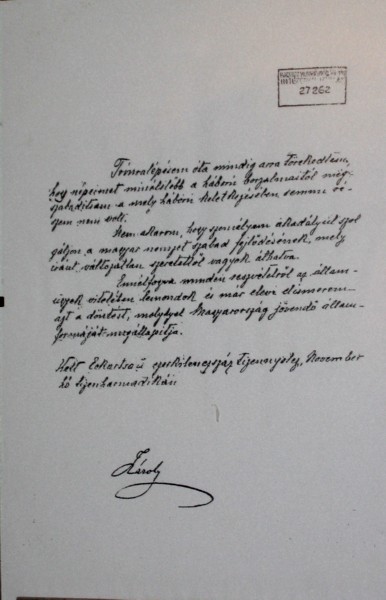 27262
Trónralépésem óta mindig arra törekedtem,
hogy népeimet minélelébb a háború borzalmaitól meg-
szabadítsam a mely háború keletkezésében semmi ré-
szem nem volt.
Nem akarom, hogy személyem akadályúl szol-
gáljon a magyar nemzet szabad fejlődésének, mely
iránt változatlan szeretettől vagyok áthatva.
Ennélfogva minden részvételről az állam-
ügyek vitelében lemondok és már eleve elismerem
azt a döntést, mely Magyarország jövendő állam-
formáját megállapítja.
Kelt Eckartsau ezerkilencszáz tizennyolcz, November
hó tizenharmadikán
Károly